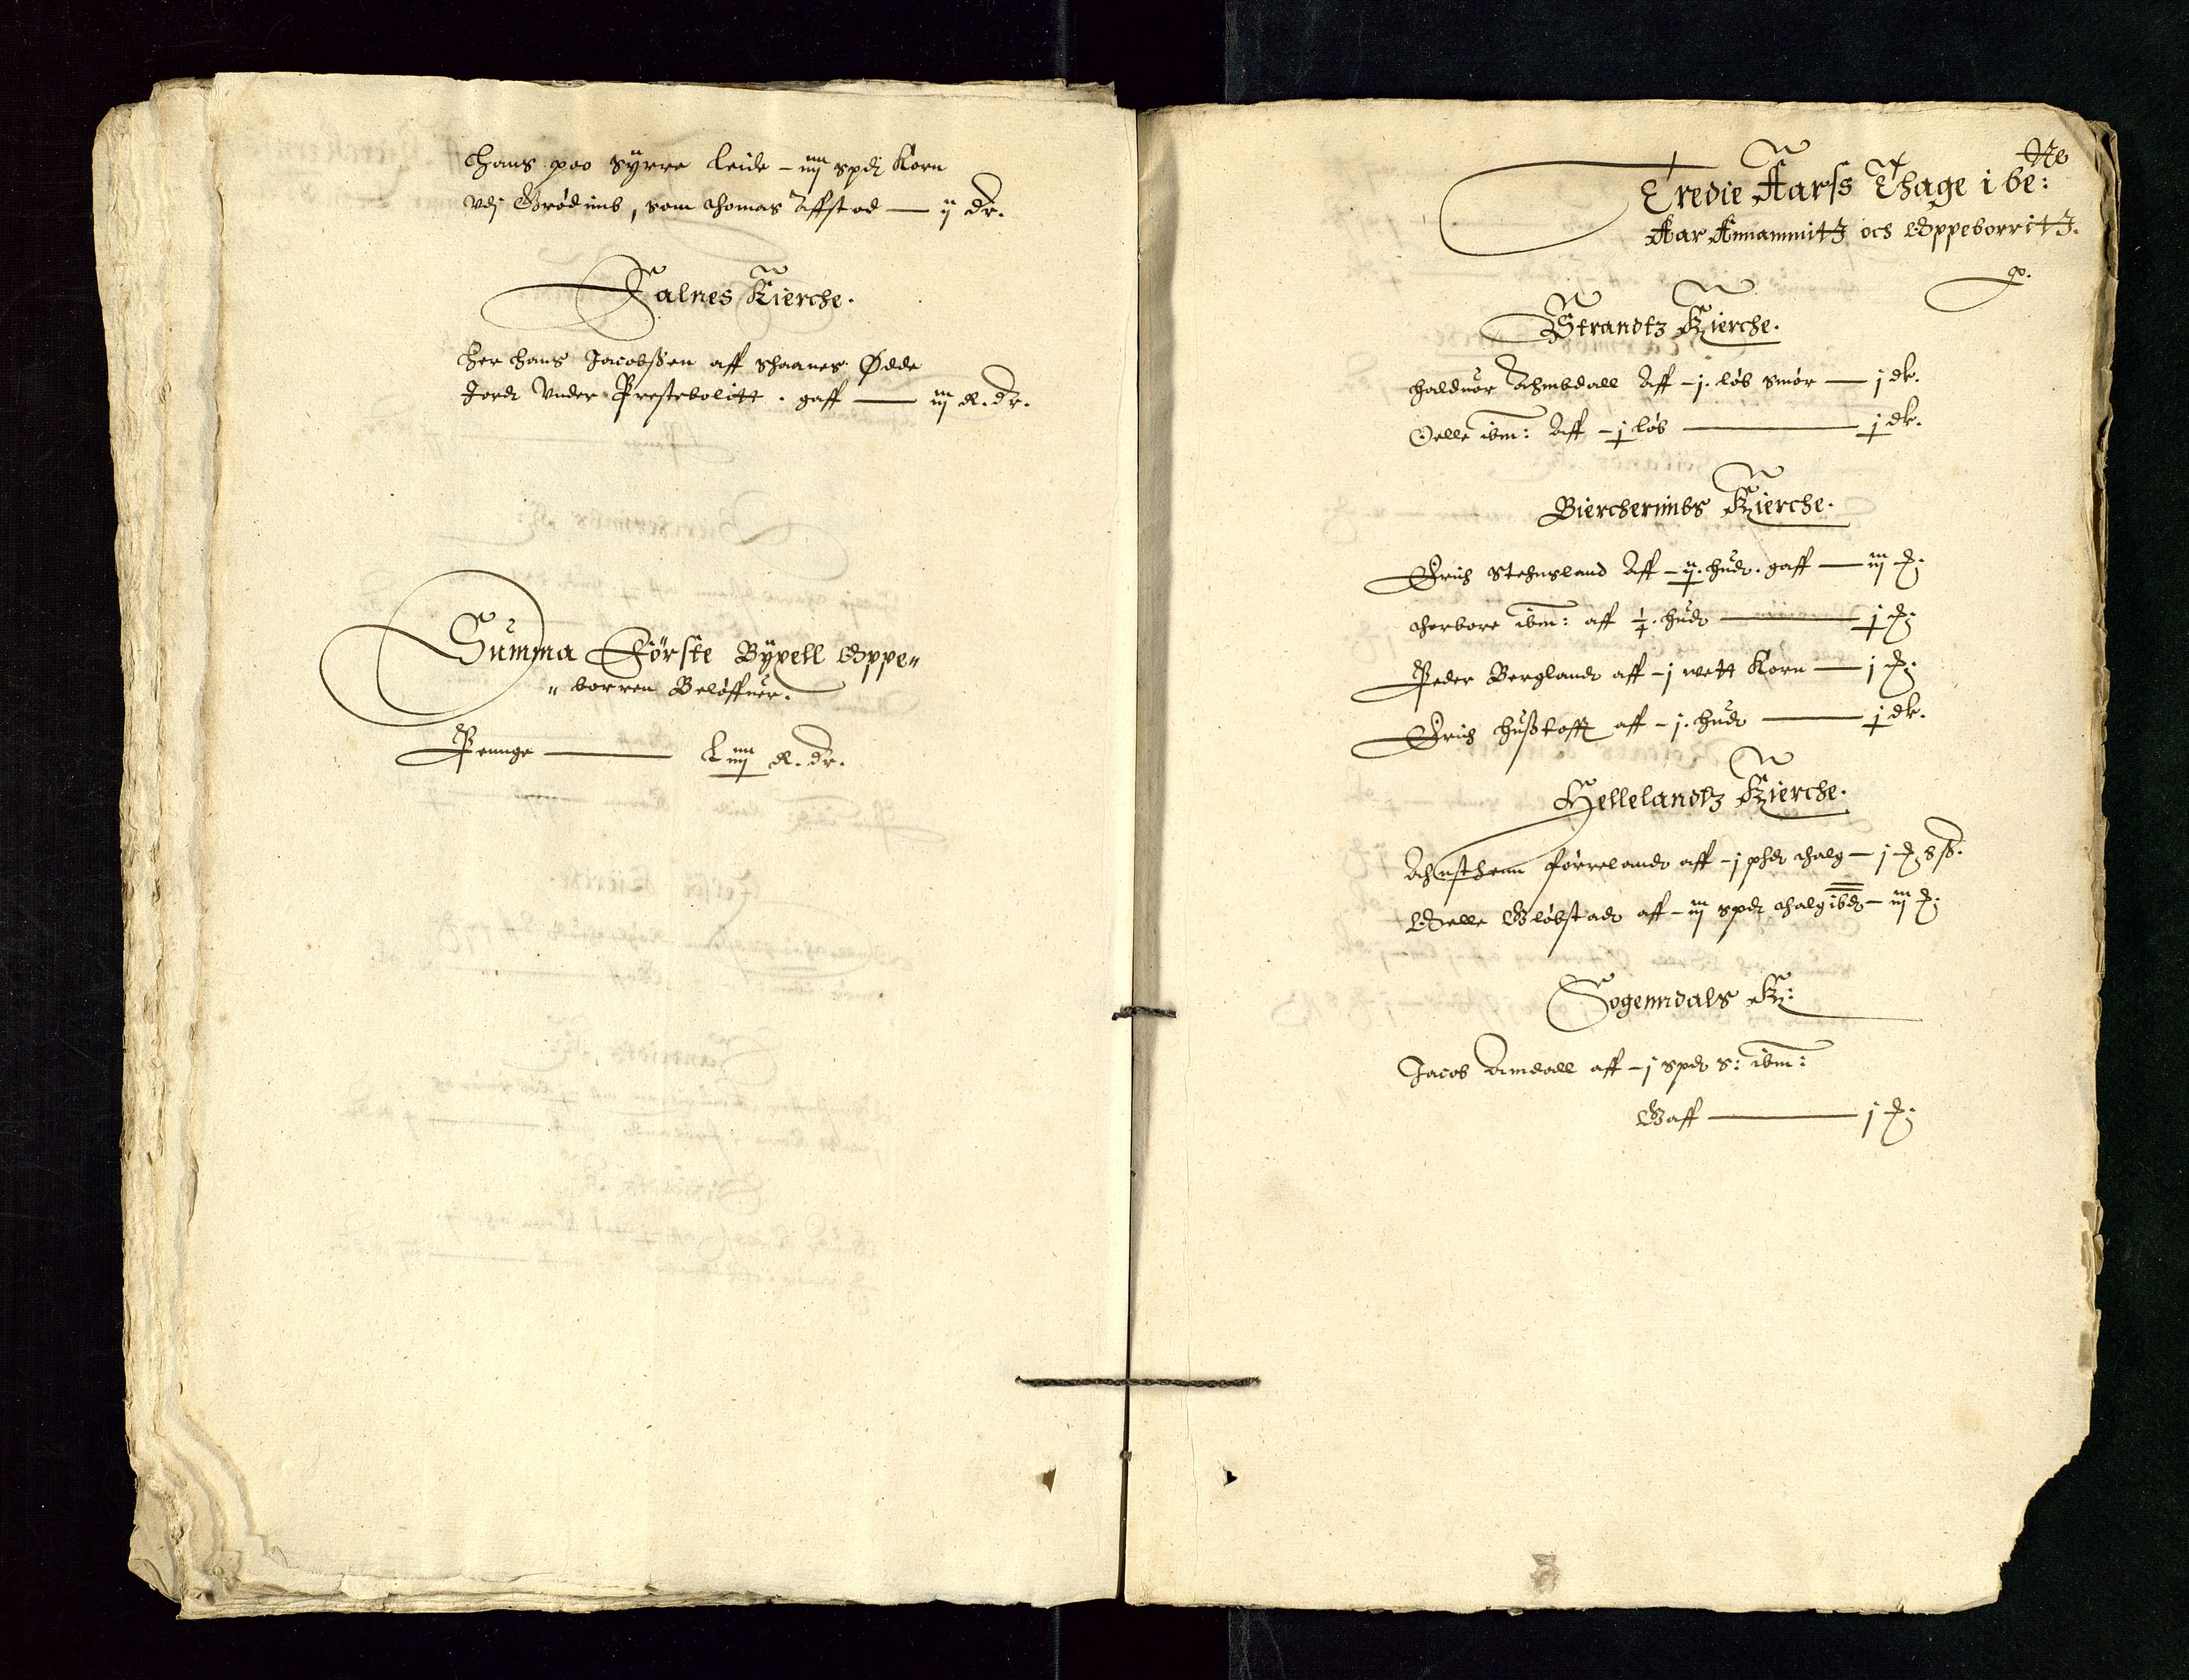 Hans paa Syrre leide – iiij spdt Korn
vdj Grødimb, som Thomas Affstod — ij dr.
Falnes Kierche.
Her Hans Jacobßen aff Skaanes Ødde
Jord Vnder Prestebolitt . gaff — iij d. dr.
Summa Förste Byxell Oppe"
" borren Beløffuer.
Pennge — Liiij d. dr.
Tredie Aarss Thage i be:
Aar Annammitz och Oppeborritz.
Strandtz Kierche.
Halduor Aff – j. løb smør — j dr.
Oelle ibm: Aff – j løb — j dr.
Biercherimbs Kierche.
Erich Stehnsland Aff – ij. hud. gaff — iij
Herbore ibm: aff ¼. hud — j
Peder Bergland aff – j wett Korn — j
Erich Hußtofft aff – j. hud — j dr.
Hellelandtz Kierche.
Førreland aff – j phd Thalg – j 8 ß.
Oelle Gløbstad aff – iij spd Thalg ibd – iij
Sogenndals K:
Jacob Amdall aff – j spd S: ibm:
Gaff — j